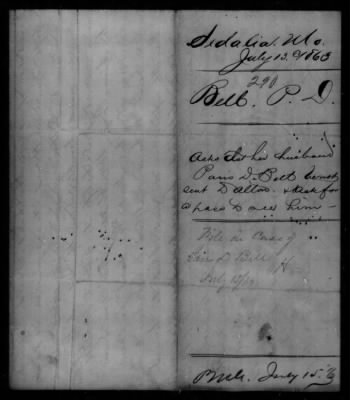 Sedalia. Mo.
July 13. 1863
290
Bell. P. D.
Asks that her husband
Paris D. Bell be not
sent to Alton. & asks for
a pass to see him —
File in Case of
D Bell
July 15
July 15.